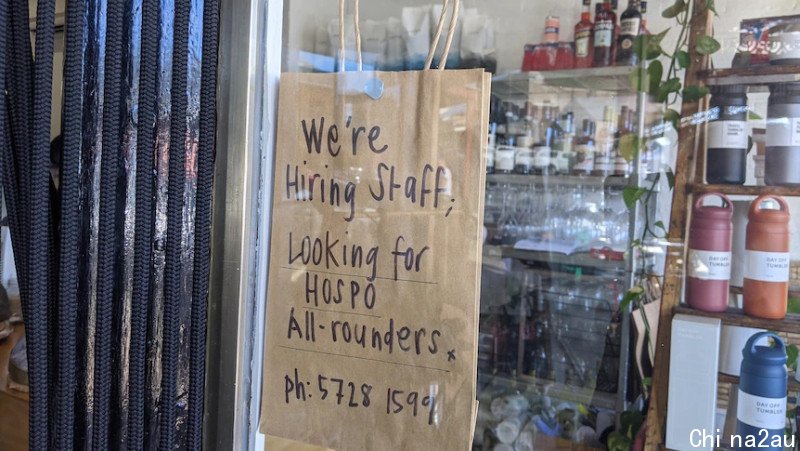 We're
Hiring Staff;
Looking for
HOSPO
All-rounders.
ph: 5728 1599
DAY OFF
TUMBLER
DAY OFF
TUMBLER
DAY OFF
TUMBLER
Chi na2au